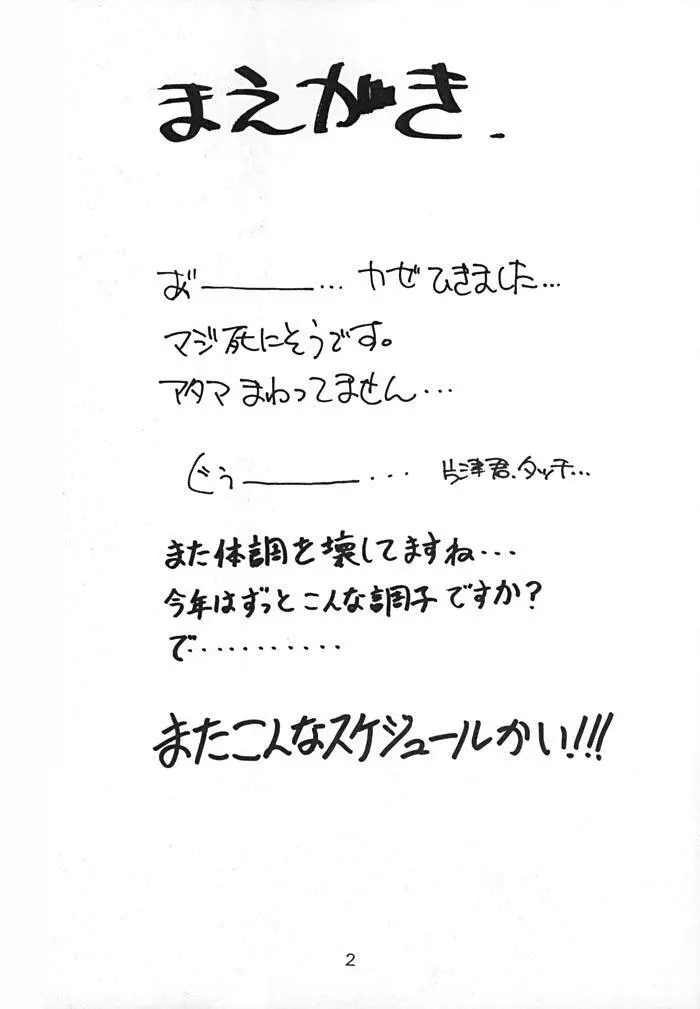 まえがき.
あ゛ー…カぜひきました…
マジ死にそうです。
アタマまわってません…
ぐぅー… 片津君、タッチ…
また体調を壊してますね…
今年はずっとこんな調子ですか？
で‥‥‥‥‥
またこんなスケジュールかい!!!
2